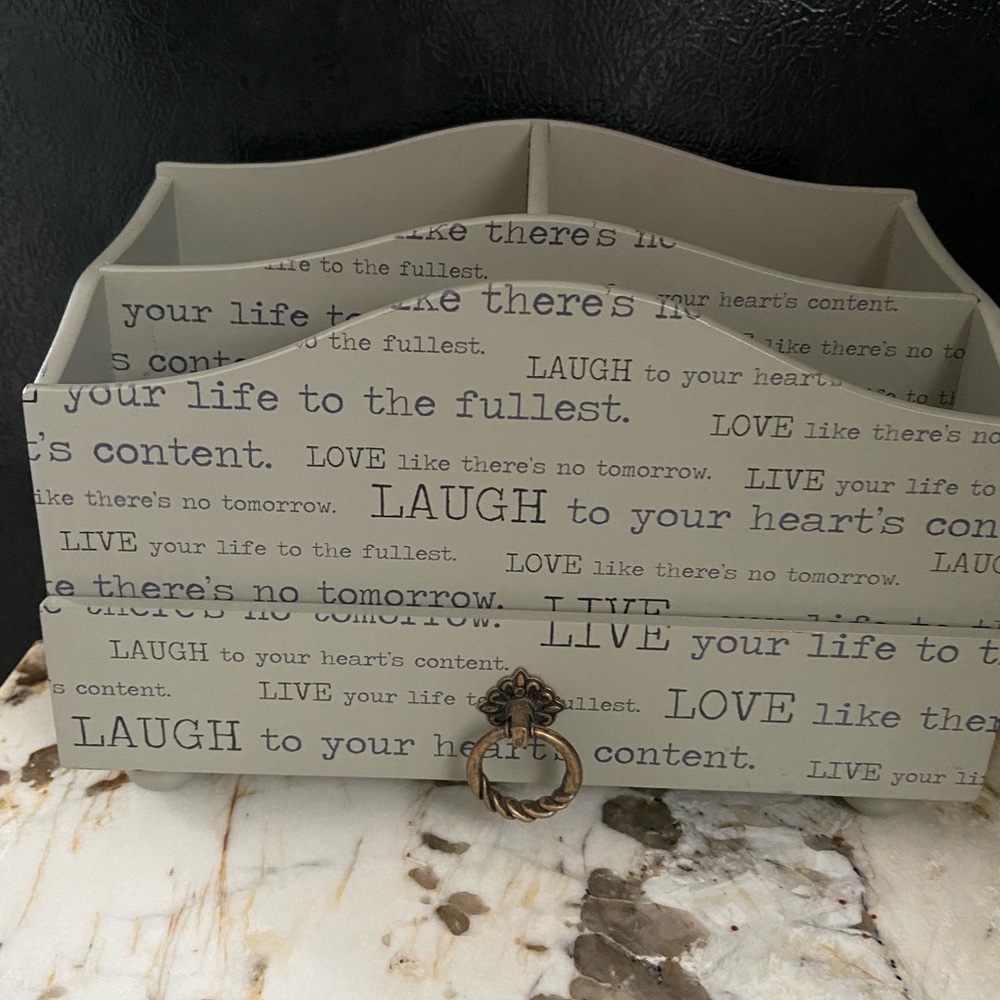 like there's no
to the fullest.
your life to
your heart's content.
like there's
s cont
like there's no to
the fullest.
LAUGH to your heart's
to
your life to the fullest.
LOVE like there's no
t's content.
LOVE like there's no tomorrow.
LIVE your life to
ike there's no tomorrow.
LAUGH to your heart's con
LIVE your life to the fullest.
LOVE like there's no tomorrow.
LAUG
e there's no tomorrow.
LIVE
e there's no tomorrow.
LIVE your life to t
LAUGH to your heart's content.
s content.
LIVE your life to fullest.
LOVE like ther
LAUGH to your heart's content.
LIVE your li